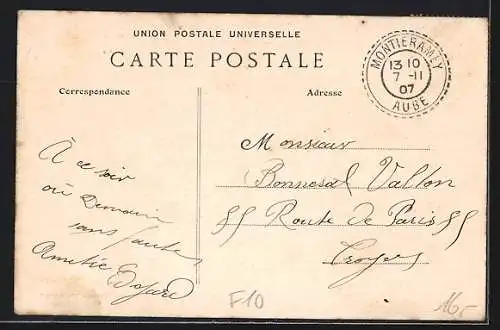 UNION POSTALE UNIVERSELLE
CARTE POSTALE
MONTIERAMEY
13 10
7 -11
07
AUBE
Correspondance
Adresse
À ce soir
ou Demain
sans faute
Amitié
Monsieur
Bonnesal Vallon
55 Route de Paris 55
Troyes
F10